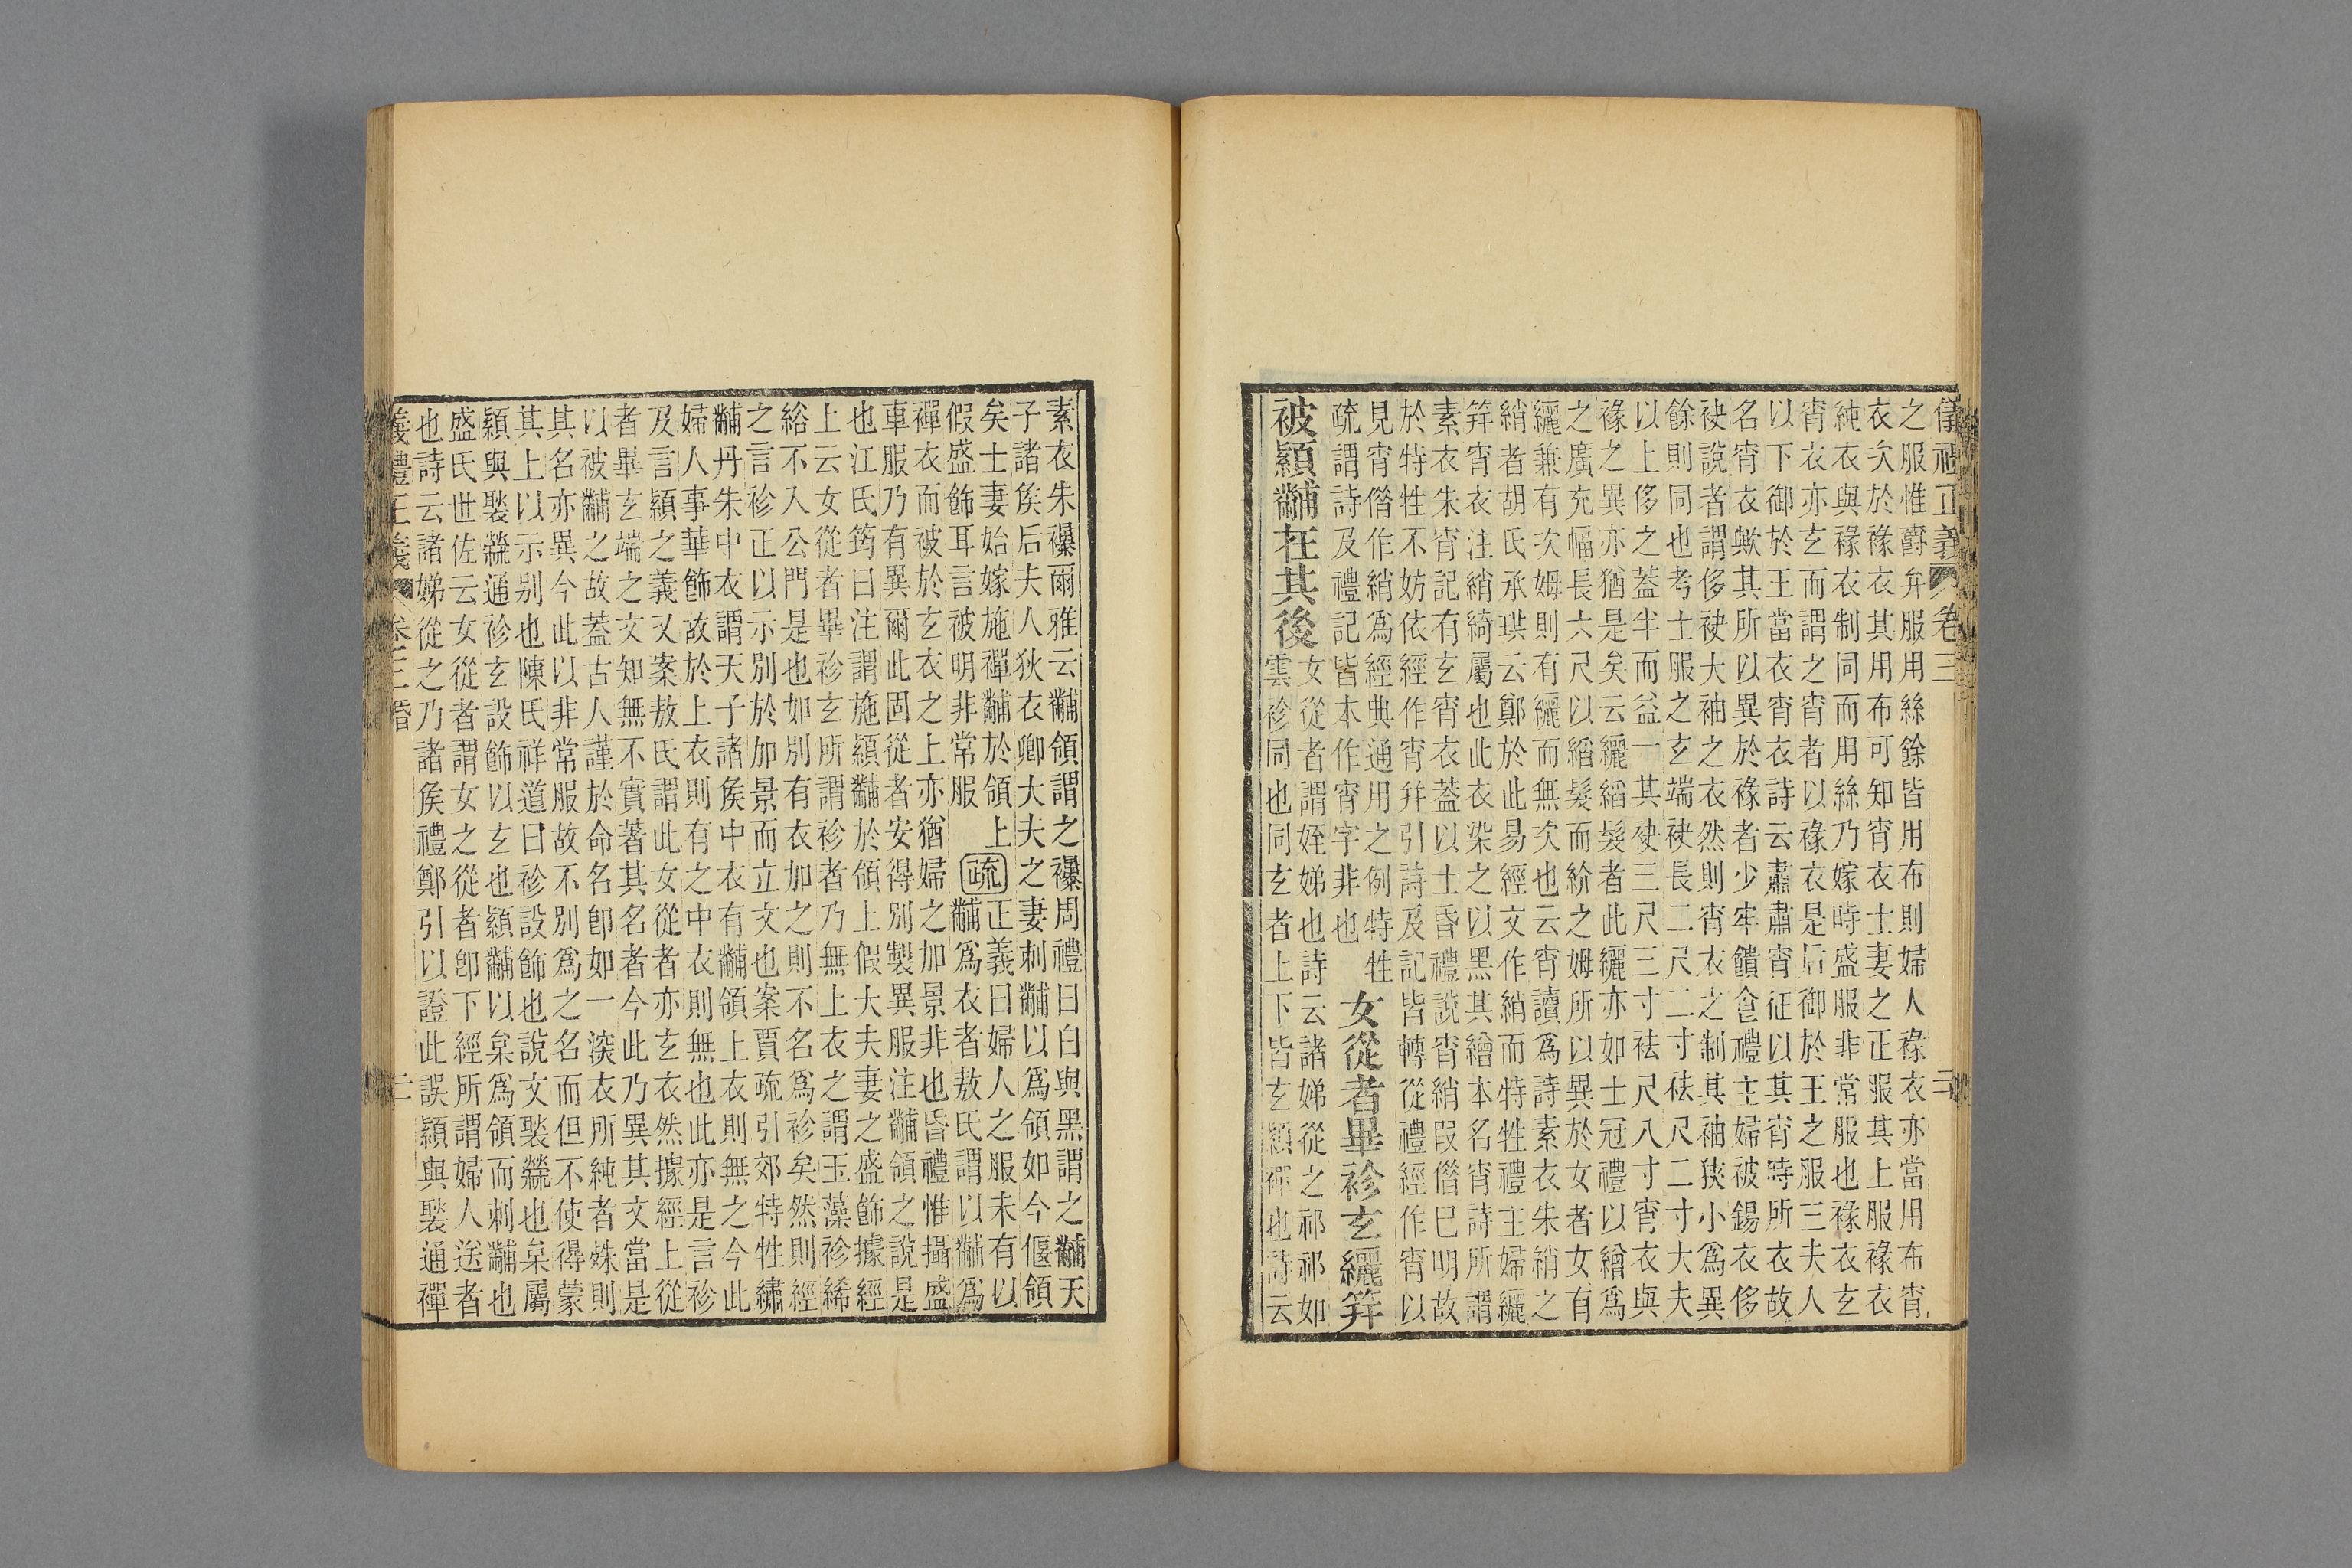 儀禮正義 卷三 二
之服惟爵弁服用絲餘皆用布則婦人褖衣亦當用布宵
衣次於褖衣其用布可知宵衣士妻之正服其上服褖衣
純衣與褖衣制同而用絲乃嫁時盛服非常服也褖衣玄
宵衣亦玄而謂之宵者以褖衣是后御於王之服三夫人
以下御於王當衣宵衣詩云肅肅宵征以其宵時所衣故
名宵衣歟其所以異於褖者少牢饋食禮主婦被錫衣侈
袂說者謂侈袂大袖之衣然則宵衣之制其袖狹小爲異
餘則同也考士服之玄端袂長二尺二寸袪尺二寸大夫
以上侈之蓋半而益一其袂三尺三寸袪尺八寸宵衣與
褖之異亦猶是矣云纚縚髮者此纚亦如士冠禮以繒爲
之廣充幅長六尺以縚髮而紒之姆所以異於女者女有
纚兼有次姆則有纚而無次也云宵讀爲詩素衣朱綃之
綃者胡氏承珙云鄭於此易經文作綃而特牲禮主婦纚
笄宵衣注綃綺屬也此衣染之以黑其繒本名宵詩所謂
素衣朱宵記有玄宵衣蓋以士昏禮說宵綃叚僭已明故
於特牲不妨依經作宵幷引詩及記皆轉從禮經作宵以
見宵僭作綃爲經典通用之例特牲
疏謂詩及禮記皆本作宵字非也
女從者畢袗玄纚笄
被顈黼在其後
女從者謂姪娣也詩云諸娣從之祁祁如
雲袗同也同玄者上下皆玄顈襌也詩云
素衣朱襮爾雅云黼領謂之襮周禮曰白與黑謂之黼天
子諸侯后夫人狄衣卿大夫之妻刺黼以爲領如今偃領
矣士妻始嫁施襌黼於領上
假盛飾耳言被明非常服
疏
正義曰婦人之服未有以
黼爲衣者敖氏謂以黼爲
襌衣而被於玄衣之上亦猶婦之加景非也昏禮惟攝盛
車服乃有異爾此固從者安得別製異服注黼領之說是
也江氏筠曰注謂施顈黼於領上假大夫妻之盛飾據經
上云女從者畢袗玄所謂袗者乃無上衣之謂玉藻袗絺
綌不入公門是也如別有衣加之則不名爲袗矣然則經
之言袗正以示別於加景而立文也案賈疏引郊特牲繡
黼丹朱中衣謂天子諸侯中衣有黼領上衣則無之今此
婦人事華飾故於上衣則有之中衣則無也此亦是言袗
及言顈之義又案敖氏謂此女從者亦玄衣然據經上從
者畢玄端之文知無不實著其名者今此乃異其文當是
以被黼之故蓋古人謹於命名卽如一深衣所純者殊則
其名亦異今此以非常服故不別爲之名而但不使得蒙
其上以示別也陳氏祥道曰袗設飾也說文褧檾也枲屬
顈與褧檾通袗玄設飾以玄也顈黼以枲爲領而刺黼也
盛氏世佐云女從者謂女之從者卽下經所謂婦人送者
也詩云諸娣從之乃諸侯禮鄭引以證此誤顈與褧通襌
義禮正義 卷三 昏 二